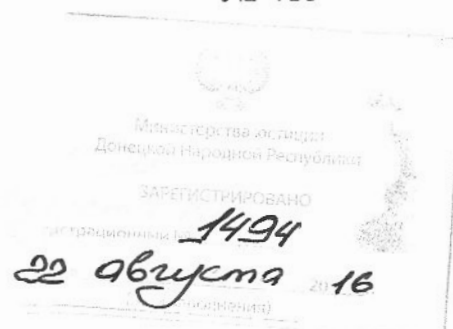 Министерства юстиции
Донецкой Народной Республики
ЗАРЕГИСТРИРОВАНО
1494
22 августа 2016